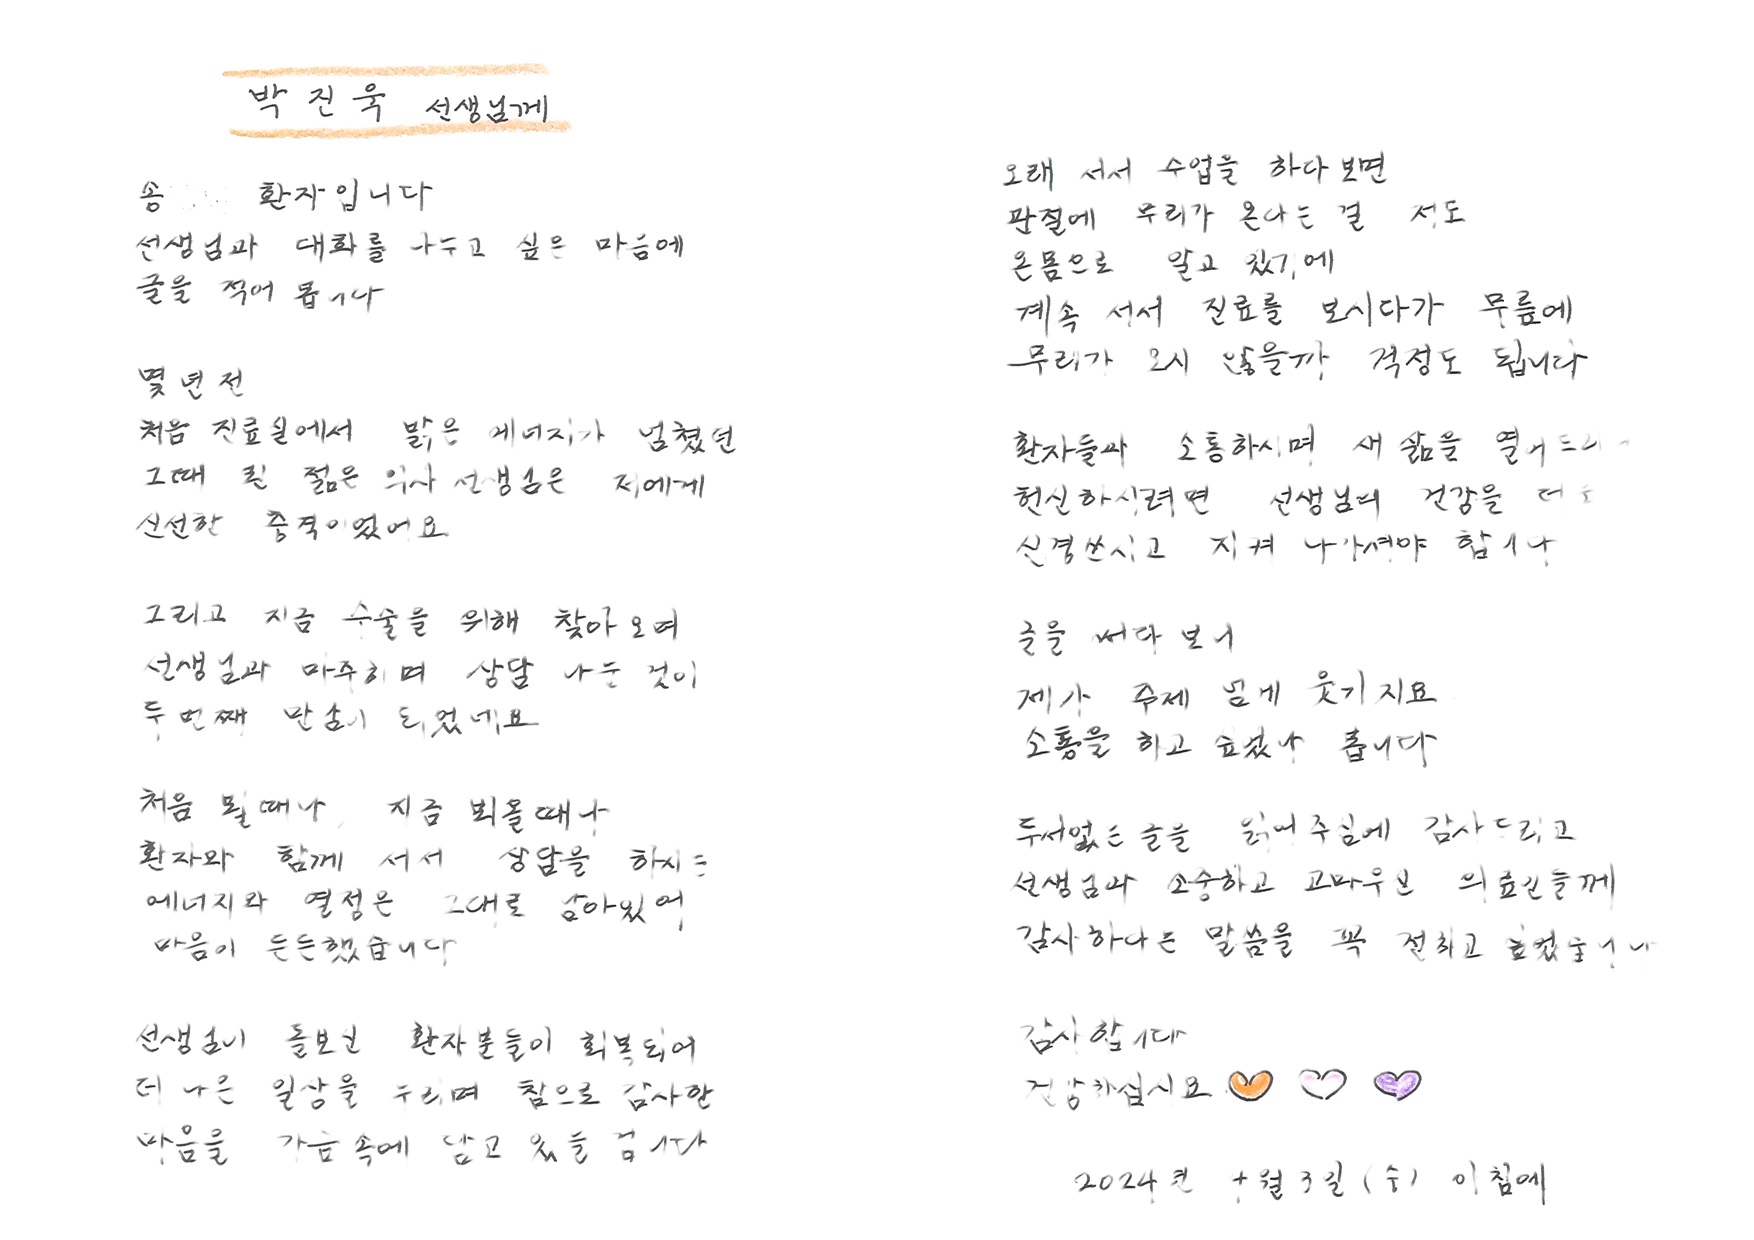 박진욱 선생님께
송 환자입니다
선생님과 대화를 나누고 싶은 마음에
글을 적어 봅니다
몇 년 전
처음 진료실에서 맑은 에너지가 넘쳤던
그때 뵌 젊은 의사 선생님은 저에게
신선한 충격이었어요
그리고 지금 수술을 위해 찾아오며
선생님과 마주하며 상담 나눈 것이
두 번째 만남이 되었네요
처음 뵐때나 지금 뵈올때나
환자와 함께 서서 상담을 하시는
에너지와 열정은 그대로 남아있어
마음이 든든했습니다
선생님이 돌보신 환자분들이 회복되어
더 나은 일상을 누리며 참으로 감사한
마음을 가슴 속에 담고 있을 겁니다
오래 서서 수업을 하다보면
관절에 무리가 온다는 걸 저도
온몸으로 알고 있기에
계속 서서 진료를 보시다가 무릎에
무리가 오시 않을까 걱정도 됩니다
환자들과 소통하시며 새 삶을 열어드리
헌신하시려면 선생님의 건강을 더
신경쓰시고 지켜 나가셔야 합니다
글을 써다 보니
제가 주제 넘게 웃기지요
소통을 하고 싶었나 봅니다
두서없는 글을 읽어주심에 감사드리고
선생님과 소중하고 고마우신 의료인들께
감사하다는 말씀을 꼭 전하고 싶었습니다
감사합니다
건강하십시요
2024년 +월 3일 (수) 아침에